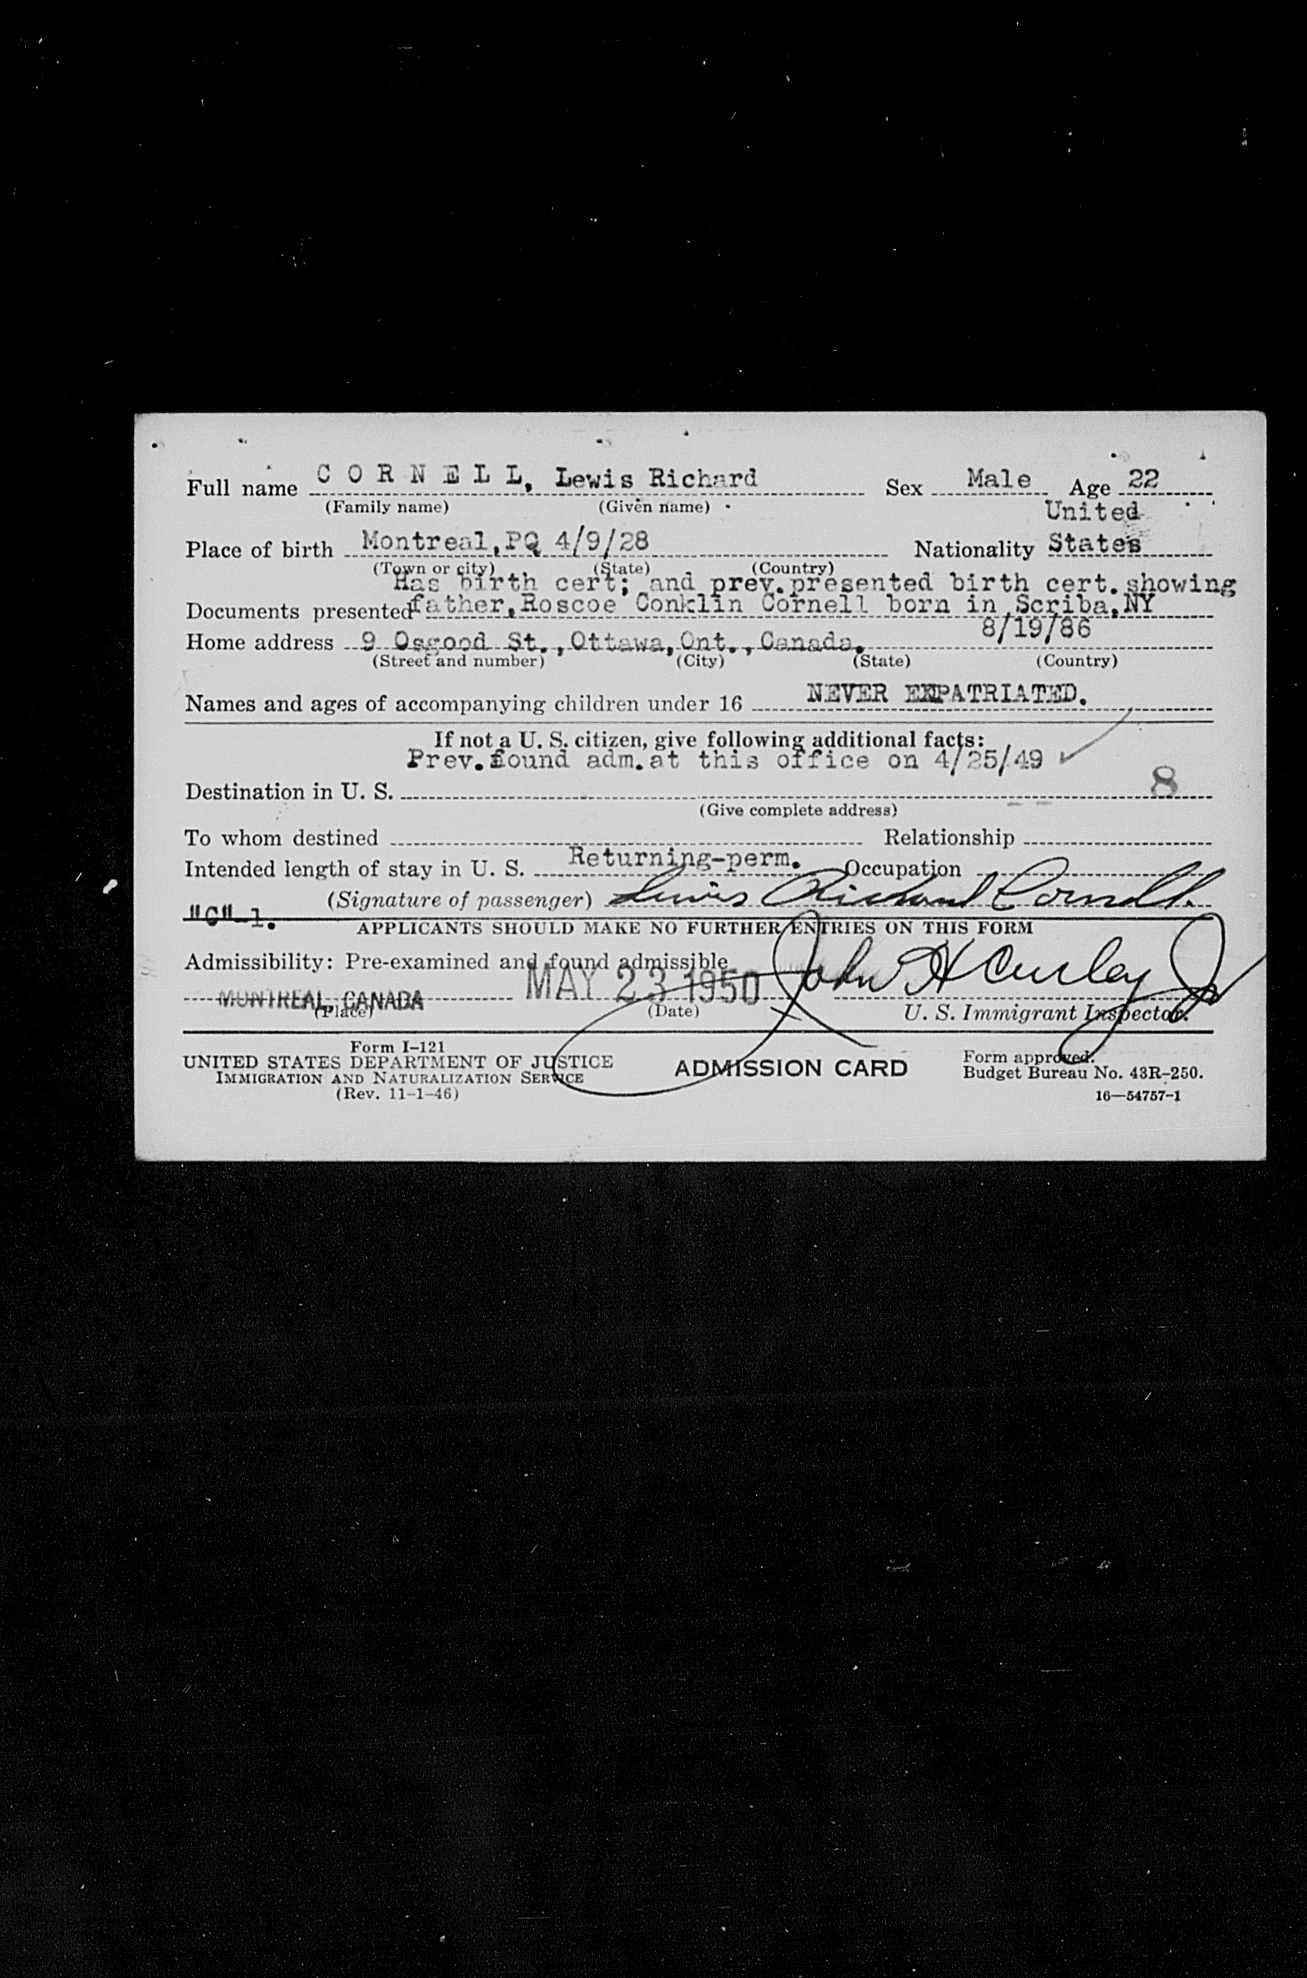 Full name C O R N E L L, Lewis Richard Sex Male Age 22
(Family name) (Given name)
United
Place of birth Montreal,PQ 4/9/28 Nationality States
(Town or city) (State) (Country)
Has birth cert; and prev.presented birth cert.showing
Documents presented father,Roscoe Conklin Cornell born in Scriba,NY
8/19/86
Home address 9 Osgood St.,Ottawa,Ont.,Canada.
(Street and number) (City) (State) (Country)
Names and ages of accompanying children under 16 NEVER EXPATRIATED.
If not a U. S. citizen, give following additional facts:
Prev.found adm.at this office on 4/25/49 ✓
Destination in U. S. 8
(Give complete address)
To whom destined Relationship
Intended length of stay in U. S. Returning-perm. Occupation
(Signature of passenger) Lewis Richard Cornell.
"C"-1.
APPLICANTS SHOULD MAKE NO FURTHER ENTRIES ON THIS FORM
Admissibility: Pre-examined and found admissible
MONTREAL, CANADA MAY 23 1950 John H Curley Jr
(Place) (Date) U. S. Immigrant Inspector.
Form I-121
UNITED STATES DEPARTMENT OF JUSTICE
IMMIGRATION AND NATURALIZATION SERVICE
(Rev. 11-1-46)
ADMISSION CARD
Form approved.
Budget Bureau No. 43R-250.
16—54757-1